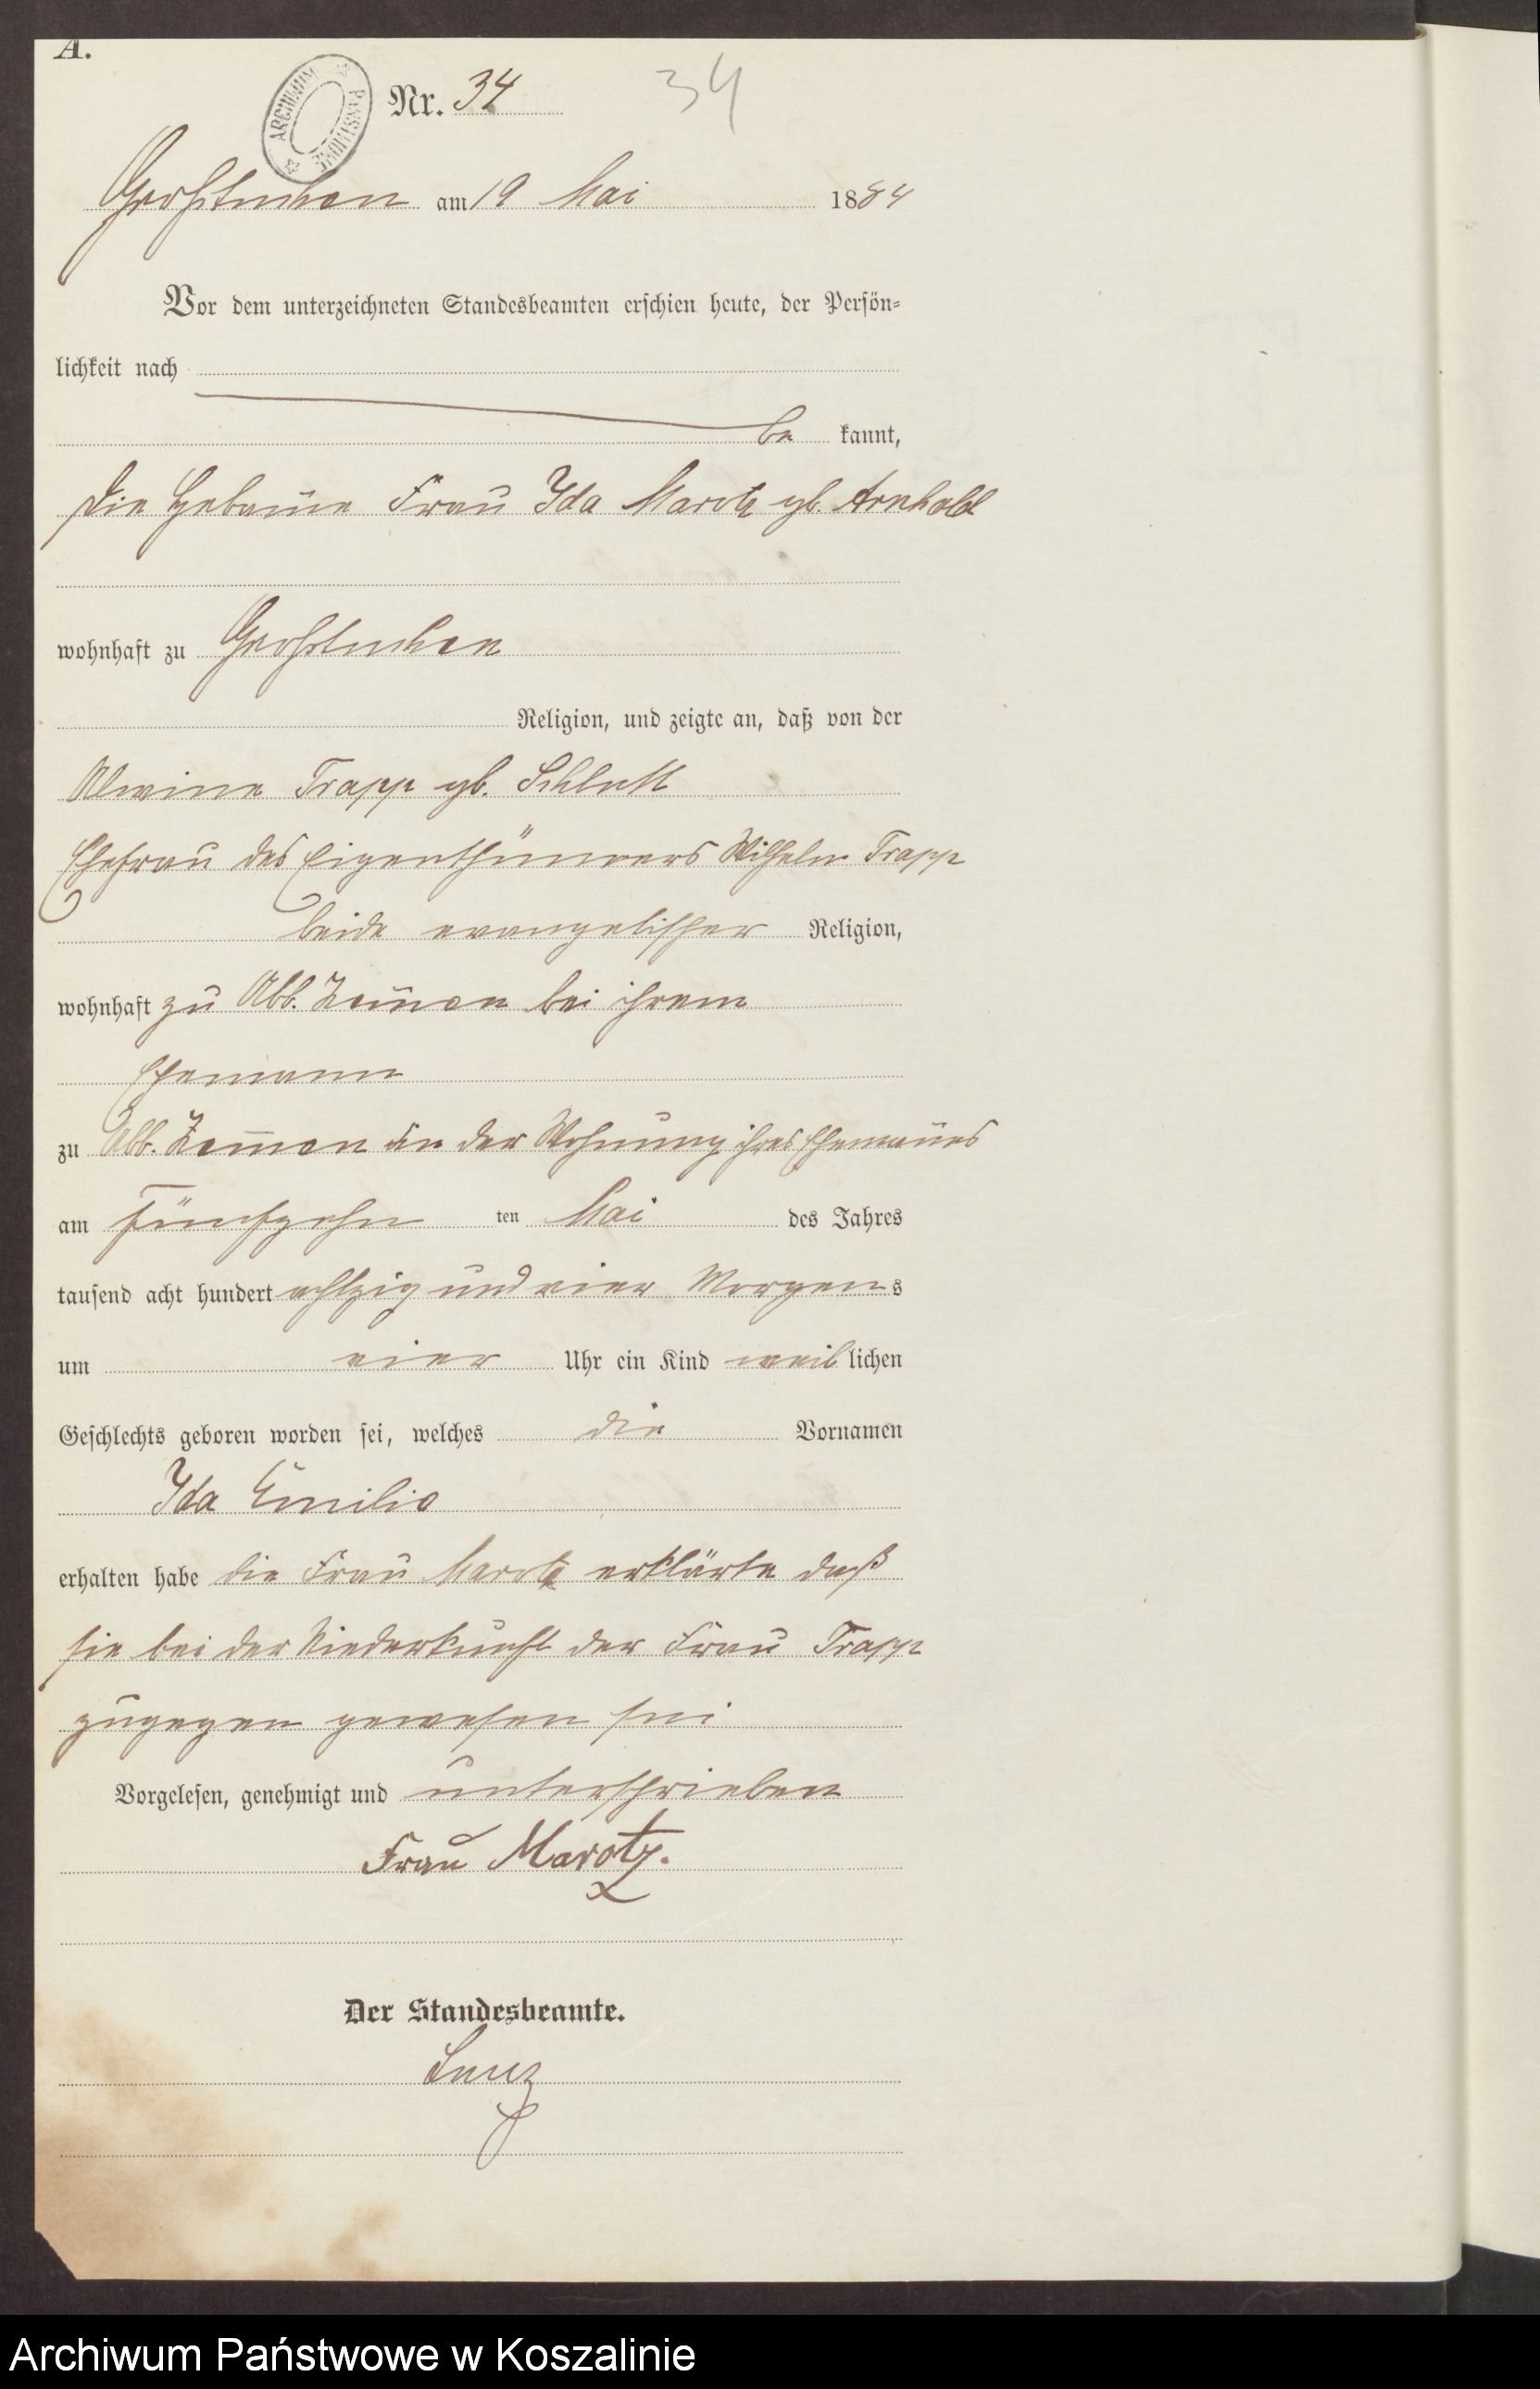 A.
ARCHIWUM PAŃSTWOWE
Nr. 34 34
Großtuchen am 19 Mai 1884
Vor dem unterzeichneten Standesbeamten erschien heute, der Persön-
lichkeit nach
be kannt,
die Hebam̄e Frau Ida Marotz gb. Arnhold
wohnhaft zu Großtuchen
Religion, und zeigte an, daß von der
Alwine Trapp gb. Schlutt
Ehefrau des Eigenthümers Wilhelm Trapp
beide evangelischer Religion,
wohnhaft zu Abb. Zem̄en bei ihrem
Ehemann
zu Abb. Zem̄en in der Wohnung ihres Eheman̄es
am fünfzehn ten Mai des Jahres
tausend acht hundert achtzig und vier Morgens
um vier Uhr ein Kind weiblichen
Geschlechts geboren worden sei, welches die Vornamen
Ida Emilie
erhalten habe die Frau Marotz erklärte daß
sie bei der Niederkunft der Frau Trapp
zugegen gewesen sei
Vorgelesen, genehmigt und unterschrieben
Frau Marotz.
Der Standesbeamte.
Archiwum Państwowe w Koszalinie